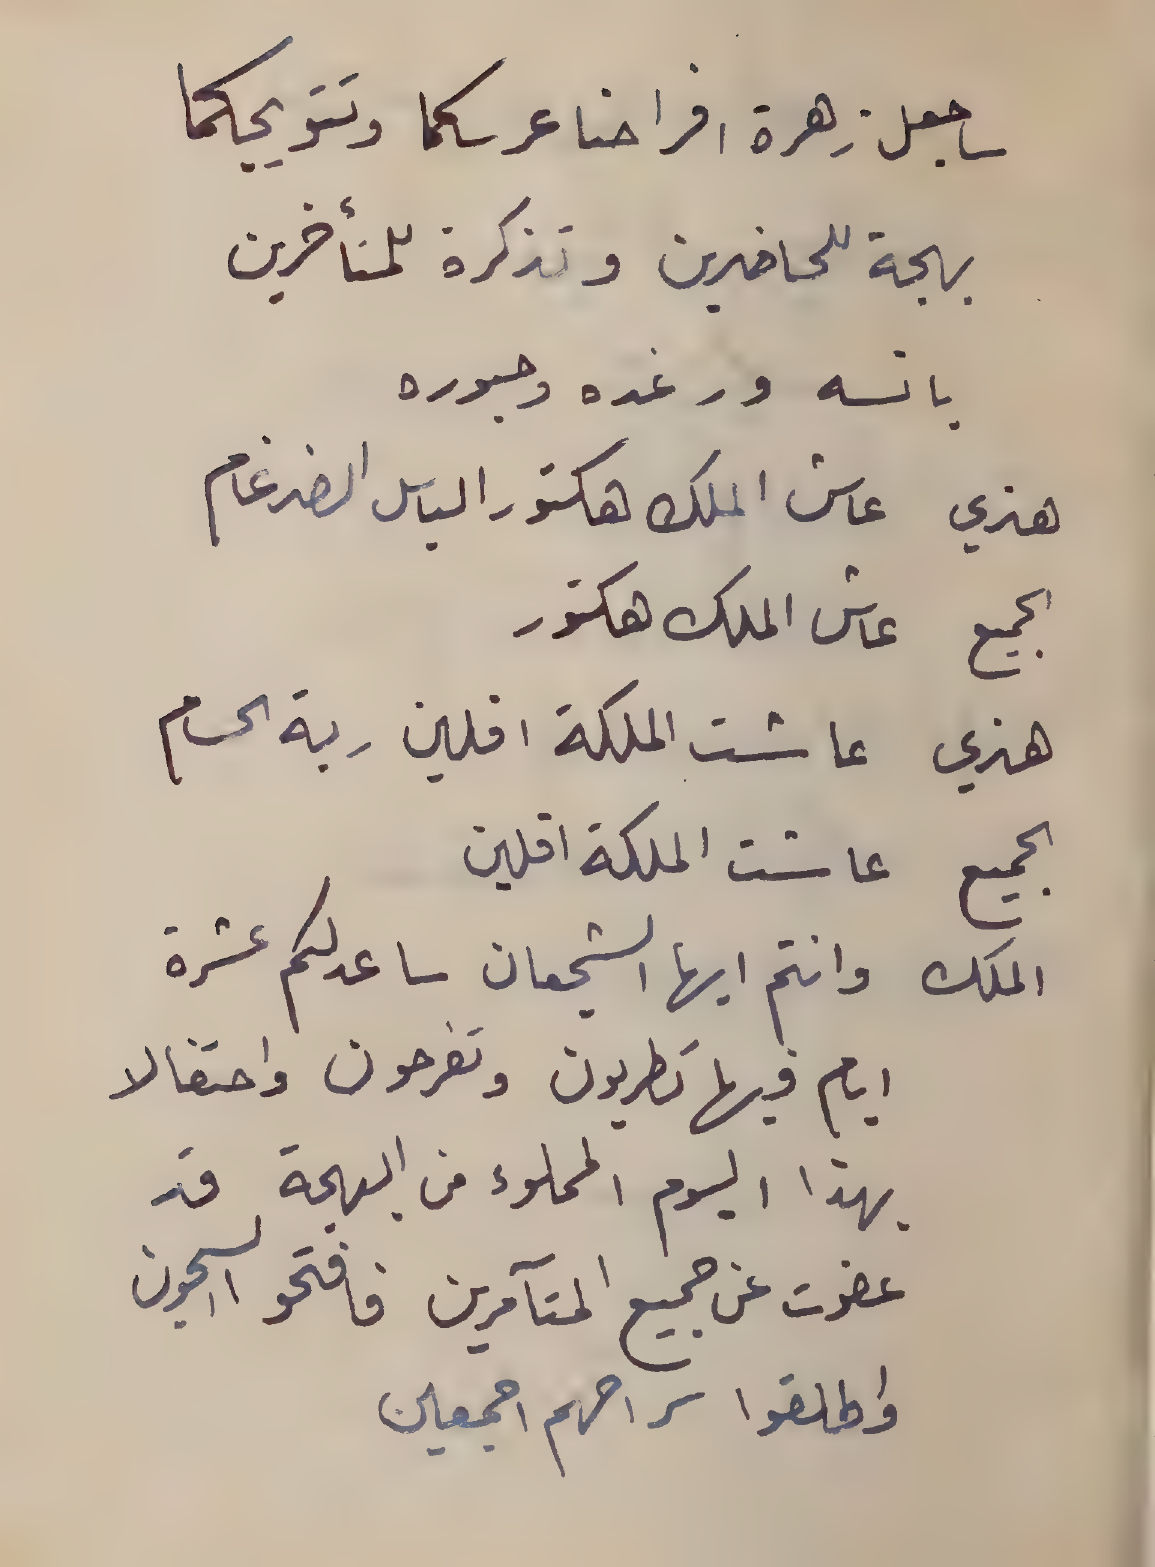 ساجعل زهرة افراحنا عرسكما وتتويجكما
بهجة للحاضرين وتذكرة للمتأخرين
بانسه ورغده وحبوره
هنري عاش الملك هكتور الباسل الضرغام
الجميع عاش الملك هكتور
هنري عاشت الملكة افلين ربة الحسام
الجميع عاشت الملكة افلين
الملك وانتم ايها الشجعان ساعد لكم عشرة
ايام فيها تطربون وتفرحون واحتفالا
بهذا اليوم المملوء من البهجة قد
عفوت عن جميع المتآمرين فافتحو السجون
واطلقوا سراحهم اجمعين